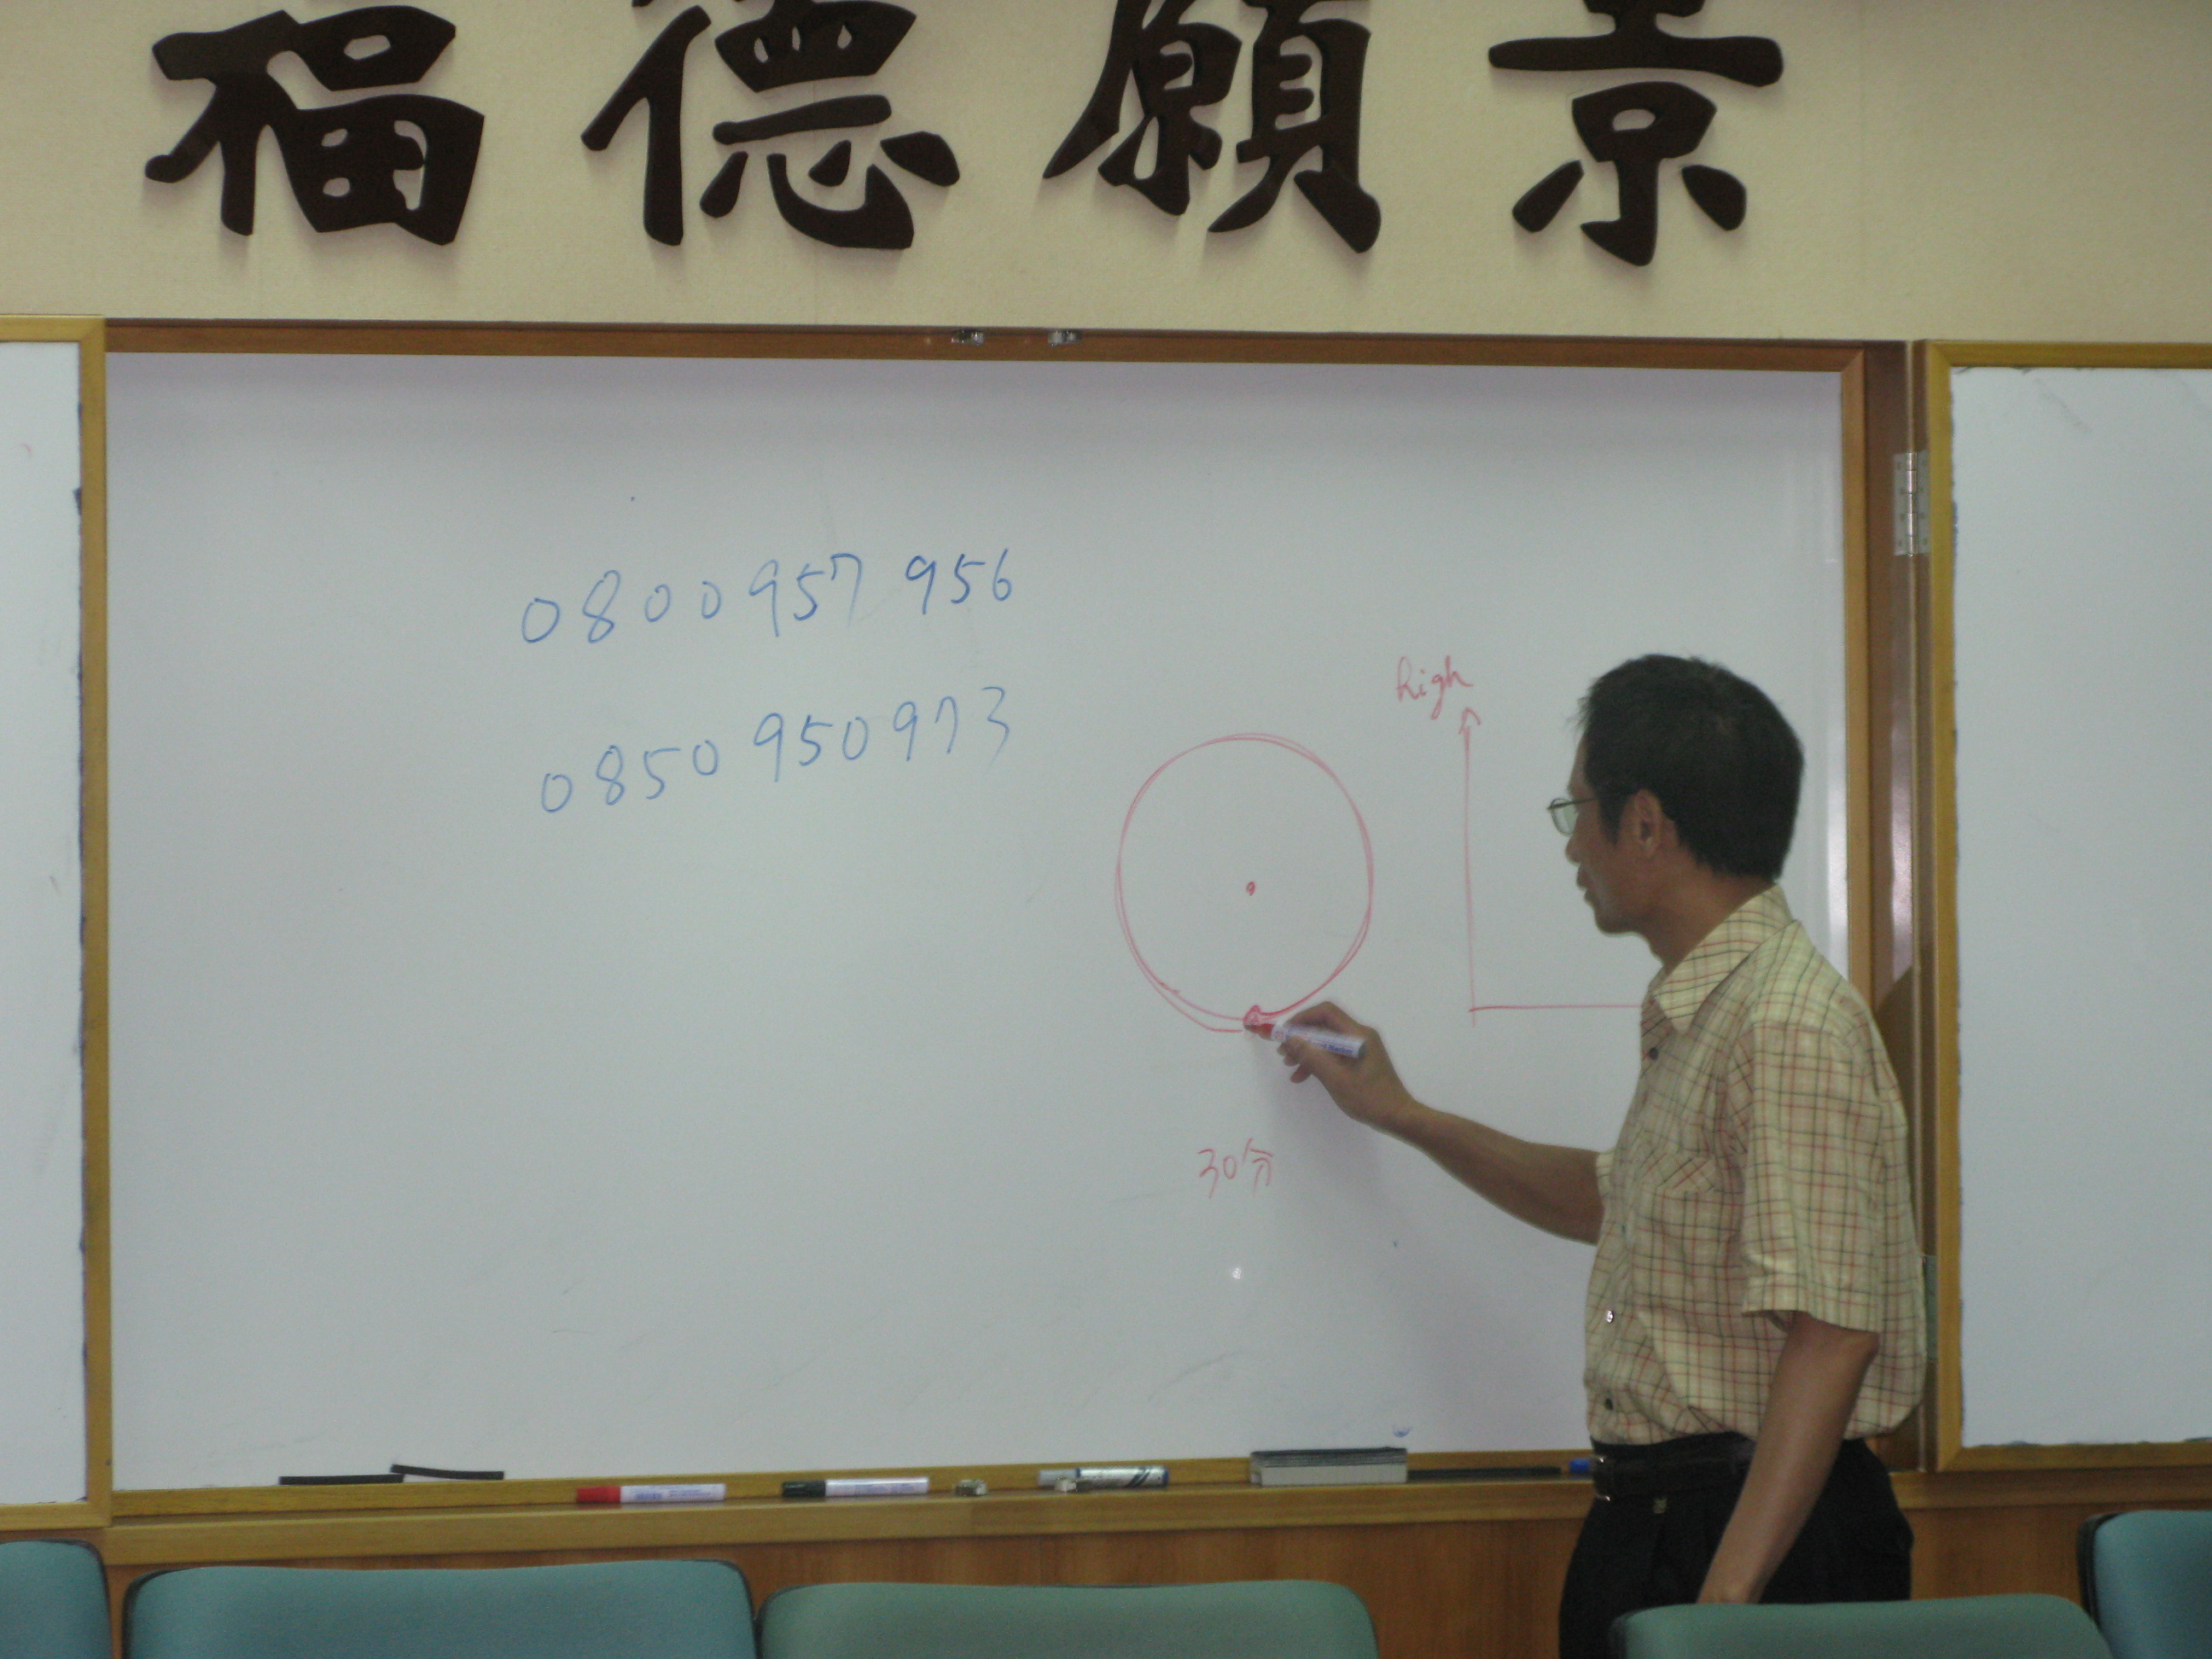 福德願景
0800957 956
0850 950973
high
30分